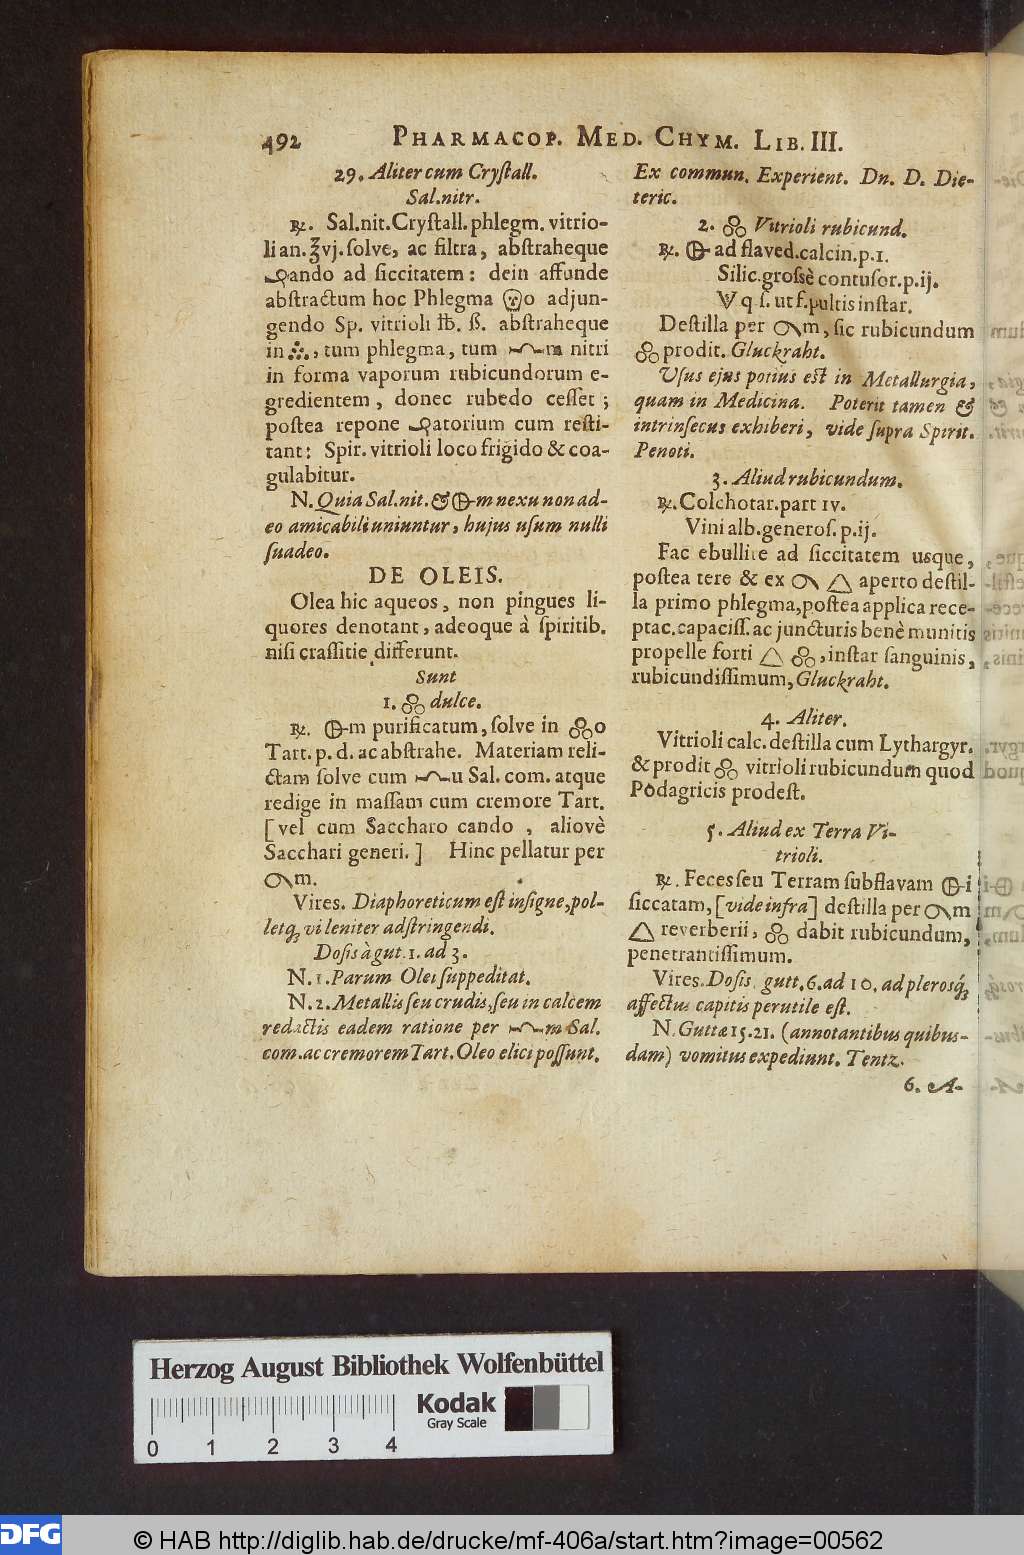 492 PHARMACOP. MED. CHYM. LIB. III.
29. Aliter cum Cryſtall.
Sal. nitr.
℞. Sal. nit. Cryſtall. phlegm. vitrio-
li an. ℥vj. ſolve, ac filtra, abſtraheque
ando ad ſiccitatem: dein affunde
abſtractum hoc Phlegma o adjun-
gendo Sp. vitrioli ℔. ß. abſtraheque
in , tum phlegma, tum m nitri
in forma vaporum rubicundorum e-
gredientem, donec rubedo ceſſet;
poſtea repone atorium cum reſti-
tant: Spir. vitrioli loco frigido & coa-
gulabitur.
N. Quia Sal. nit. & 🜖m nexu non ad-
eo amicabili uniuntur, hujus uſum nulli
ſuadeo.
DE OLEIS.
Olea hic aqueos, non pingues li-
quores denotant, adeoque à ſpiritib.
niſi craſſitie differunt.
Sunt
1. 🝆 dulce.
℞. 🜖m purificatum, ſolve in 🝆o
Tart. p. d. ac abſtrahe. Materiam reli-
ctam ſolve cum u Sal. com. atque
redige in maſſam cum cremore Tart.
[vel cum Saccharo cando, aliovè
Sacchari generi.] Hinc pellatur per
🝭m.
Vires. Diaphoreticum eſt inſigne, pol-
letqꝫ vi leniter adſtringendi.
Doſis à gut. 1. ad 3.
N. 1. Parum Olei ſuppeditat.
N. 2. Metallis ſeu crudis, ſeu in calcem
redactis eadem ratione per m Sal.
com. ac cremorem Tart. Oleo elici poſſunt.
Ex commun. Experient. Dn. D. Die-
teric.
2. 🝆 Vitrioli rubicund.
℞. 🜖 ad flaved. calcin. p. 1.
Silic. groſsè contuſor. p. ij.
🜄 q ſ. ut f. pultis inſtar.
Deſtilla per 🝭m, ſic rubicundum
🝆 prodit. Gluckraht.
Uſus ejus potius eſt in Metallurgia,
quam in Medicina. Poterit tamen &
intrinſecus exhiberi, vide ſupra Spirit.
Penoti.
3. Aliud rubicundum.
℞. Colchotar. part iv.
Vini alb. generoſ. p. ij.
Fac ebullire ad ſiccitatem usque,
poſtea tere & ex 🝭 🜂 aperto deſtil-
la primo phlegma, poſtea applica rece-
ptac. capaciſſ. ac juncturis benè munitis
propelle forti 🜂 🝆, inſtar ſanguinis,
rubicundiſſimum, Gluckraht.
4. Aliter.
Vitrioli calc. deſtilla cum Lythargyr.
& prodit 🝆 vitrioli rubicundum quod
Podagricis prodeſt.
5. Aliud ex Terra Vi-
trioli.
℞. Feces ſeu Terram ſubflavam 🜖i
ſiccatam, [vide infra] deſtilla per 🝭m
🜂 reverberii, 🝆 dabit rubicundum,
penetrantiſſimum.
Vires. Doſis gutt. 6. ad 10. ad plerosq́ꝫ
affectus capitis perutile eſt.
N. Guttæ 15. 21. (annotantibus quibus-
dam) vomitus expediunt. Tentz.
6. A-
Herzog August Bibliothek Wolfenbüttel
Kodak
Gray Scale
0 1 2 3 4
DFG © HAB http://diglib.hab.de/drucke/mf-406a/start.htm?image=00562